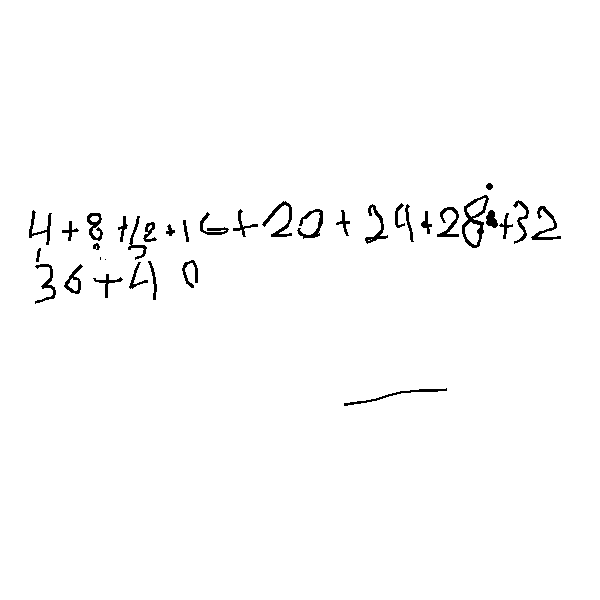 4+8+12+16+20+24+28+32
36+40